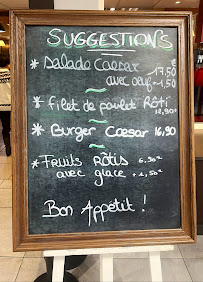 SUGGESTIONS
* Salade Caesar 17,50 €
avec oeuf + 1,50
~
* Filet de poulet Rôti 18,90 €
~
* Burger Caesar 16,90
~
* Fruits Rôtis 6.50 €
avec glace + 1,50 €
Bon Appétit !